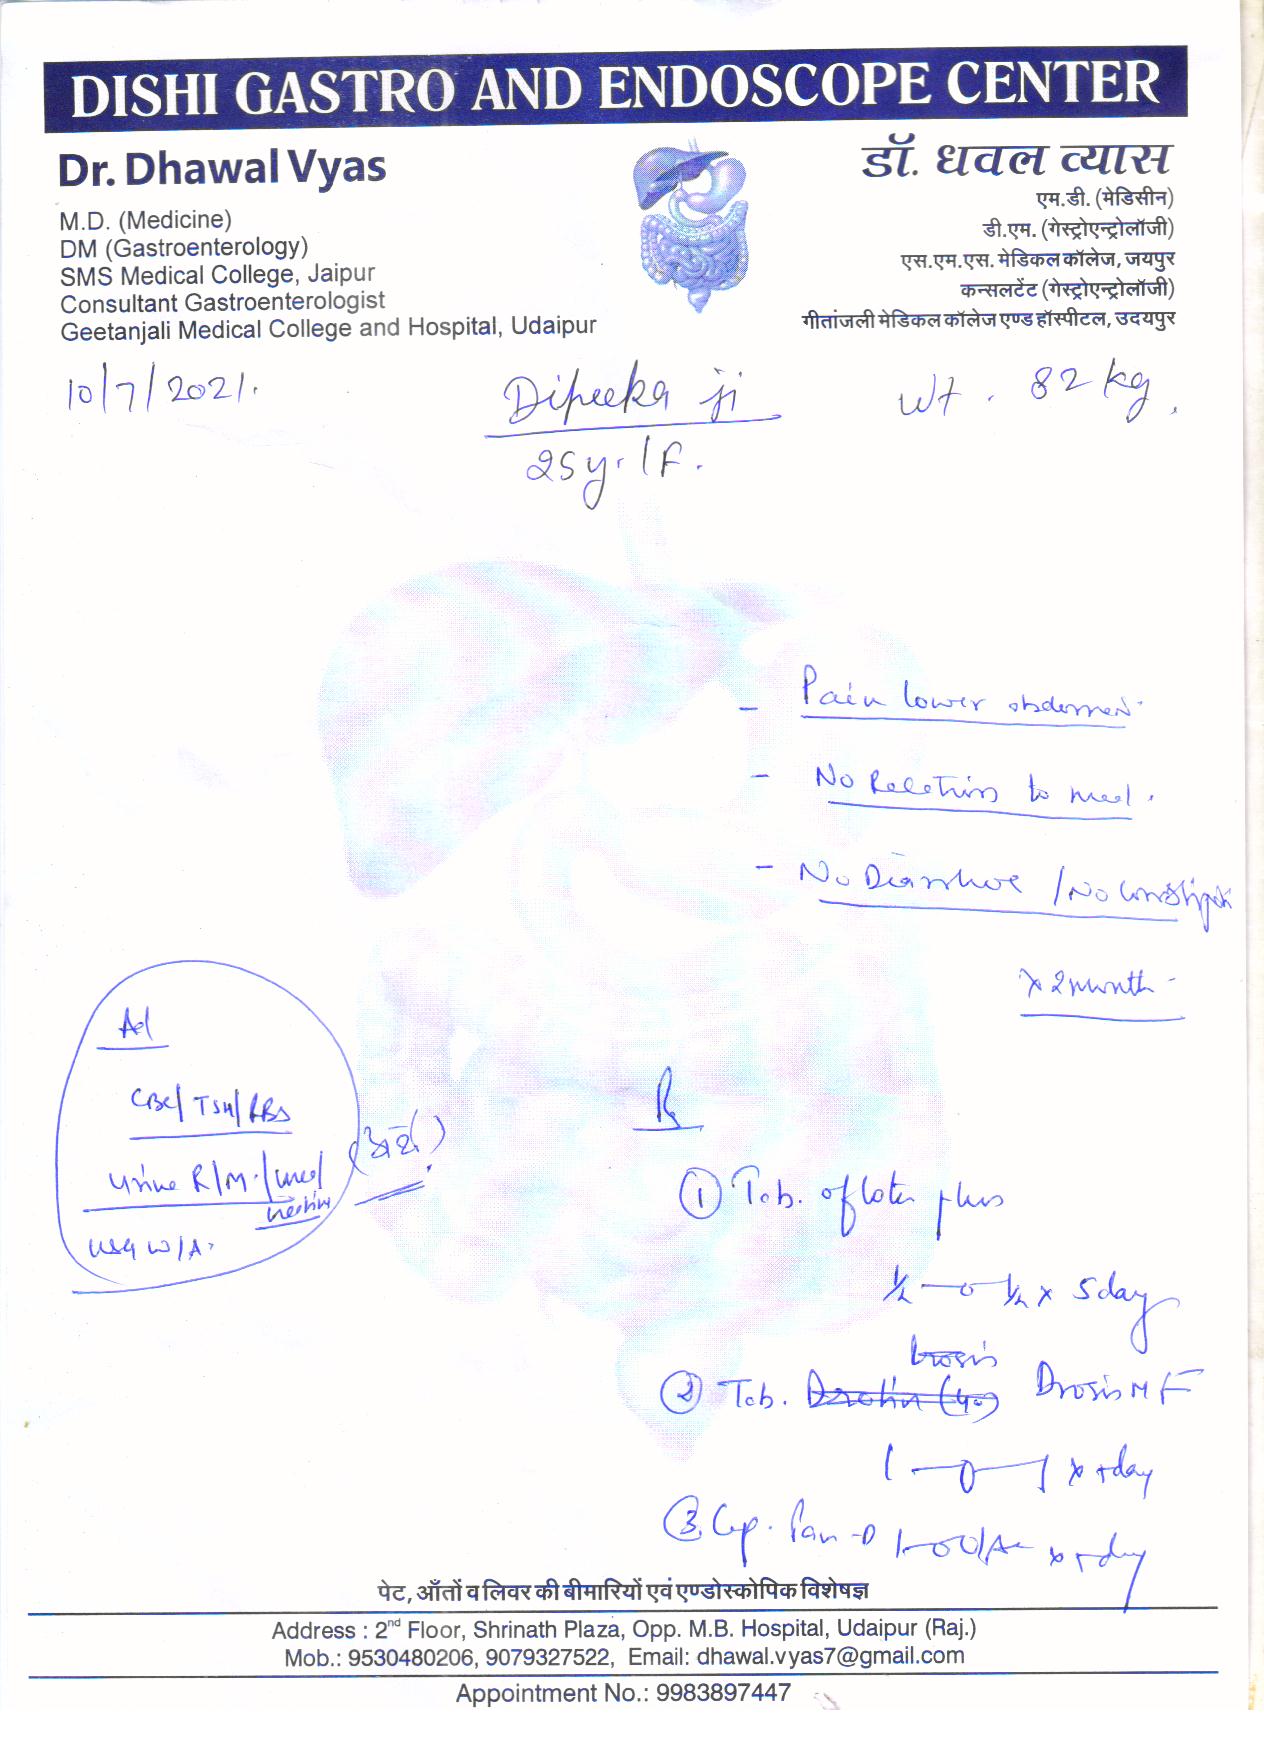 DISHI GASTRO AND ENDOSCOPE CENTER
Dr. Dhawal Vyas
M.D. (Medicine)
DM (Gastroenterology)
SMS Medical College, Jaipur
Consultant Gastroenterologist
Geetanjali Medical College and Hospital, Udaipur
डॉ. धवल व्यास
एम.डी. (मेडिसीन)
डी.एम. (गेस्ट्रोएन्ट्रोलॉजी)
एस.एम.एस. मेडिकल कॉलेज, जयपुर
कन्सलटेंट (गेस्ट्रोएन्ट्रोलॉजी)
गीतांजली मेडिकल कॉलेज एण्ड हॉस्पीटल, उदयपुर
10/7/2021.
Dipeeka ji
Wt. 82 kg.
25y./F.
- Pain lower abdomen
- No Relation to meal.
- No Diarrhoe / No
x 2 month
Ad
CBC/ TSH/ RBS
Urine R/M.
USG W/A
Rx
① Tab. oflotas plus
1/2 — 0 — 1/2 x 5 day
② Tab. Drosis MF
1 — 0 — 1 x day
③ Cap. Pan-D
पेट, आँतों व लिवर की बीमारियों एवं एण्डोस्कोपिक विशेषज्ञ
Address : 2nd Floor, Shrinath Plaza, Opp. M.B. Hospital, Udaipur (Raj.)
Mob.: 9530480206, 9079327522, Email: dhawal.vyas7@gmail.com
Appointment No.: 9983897447